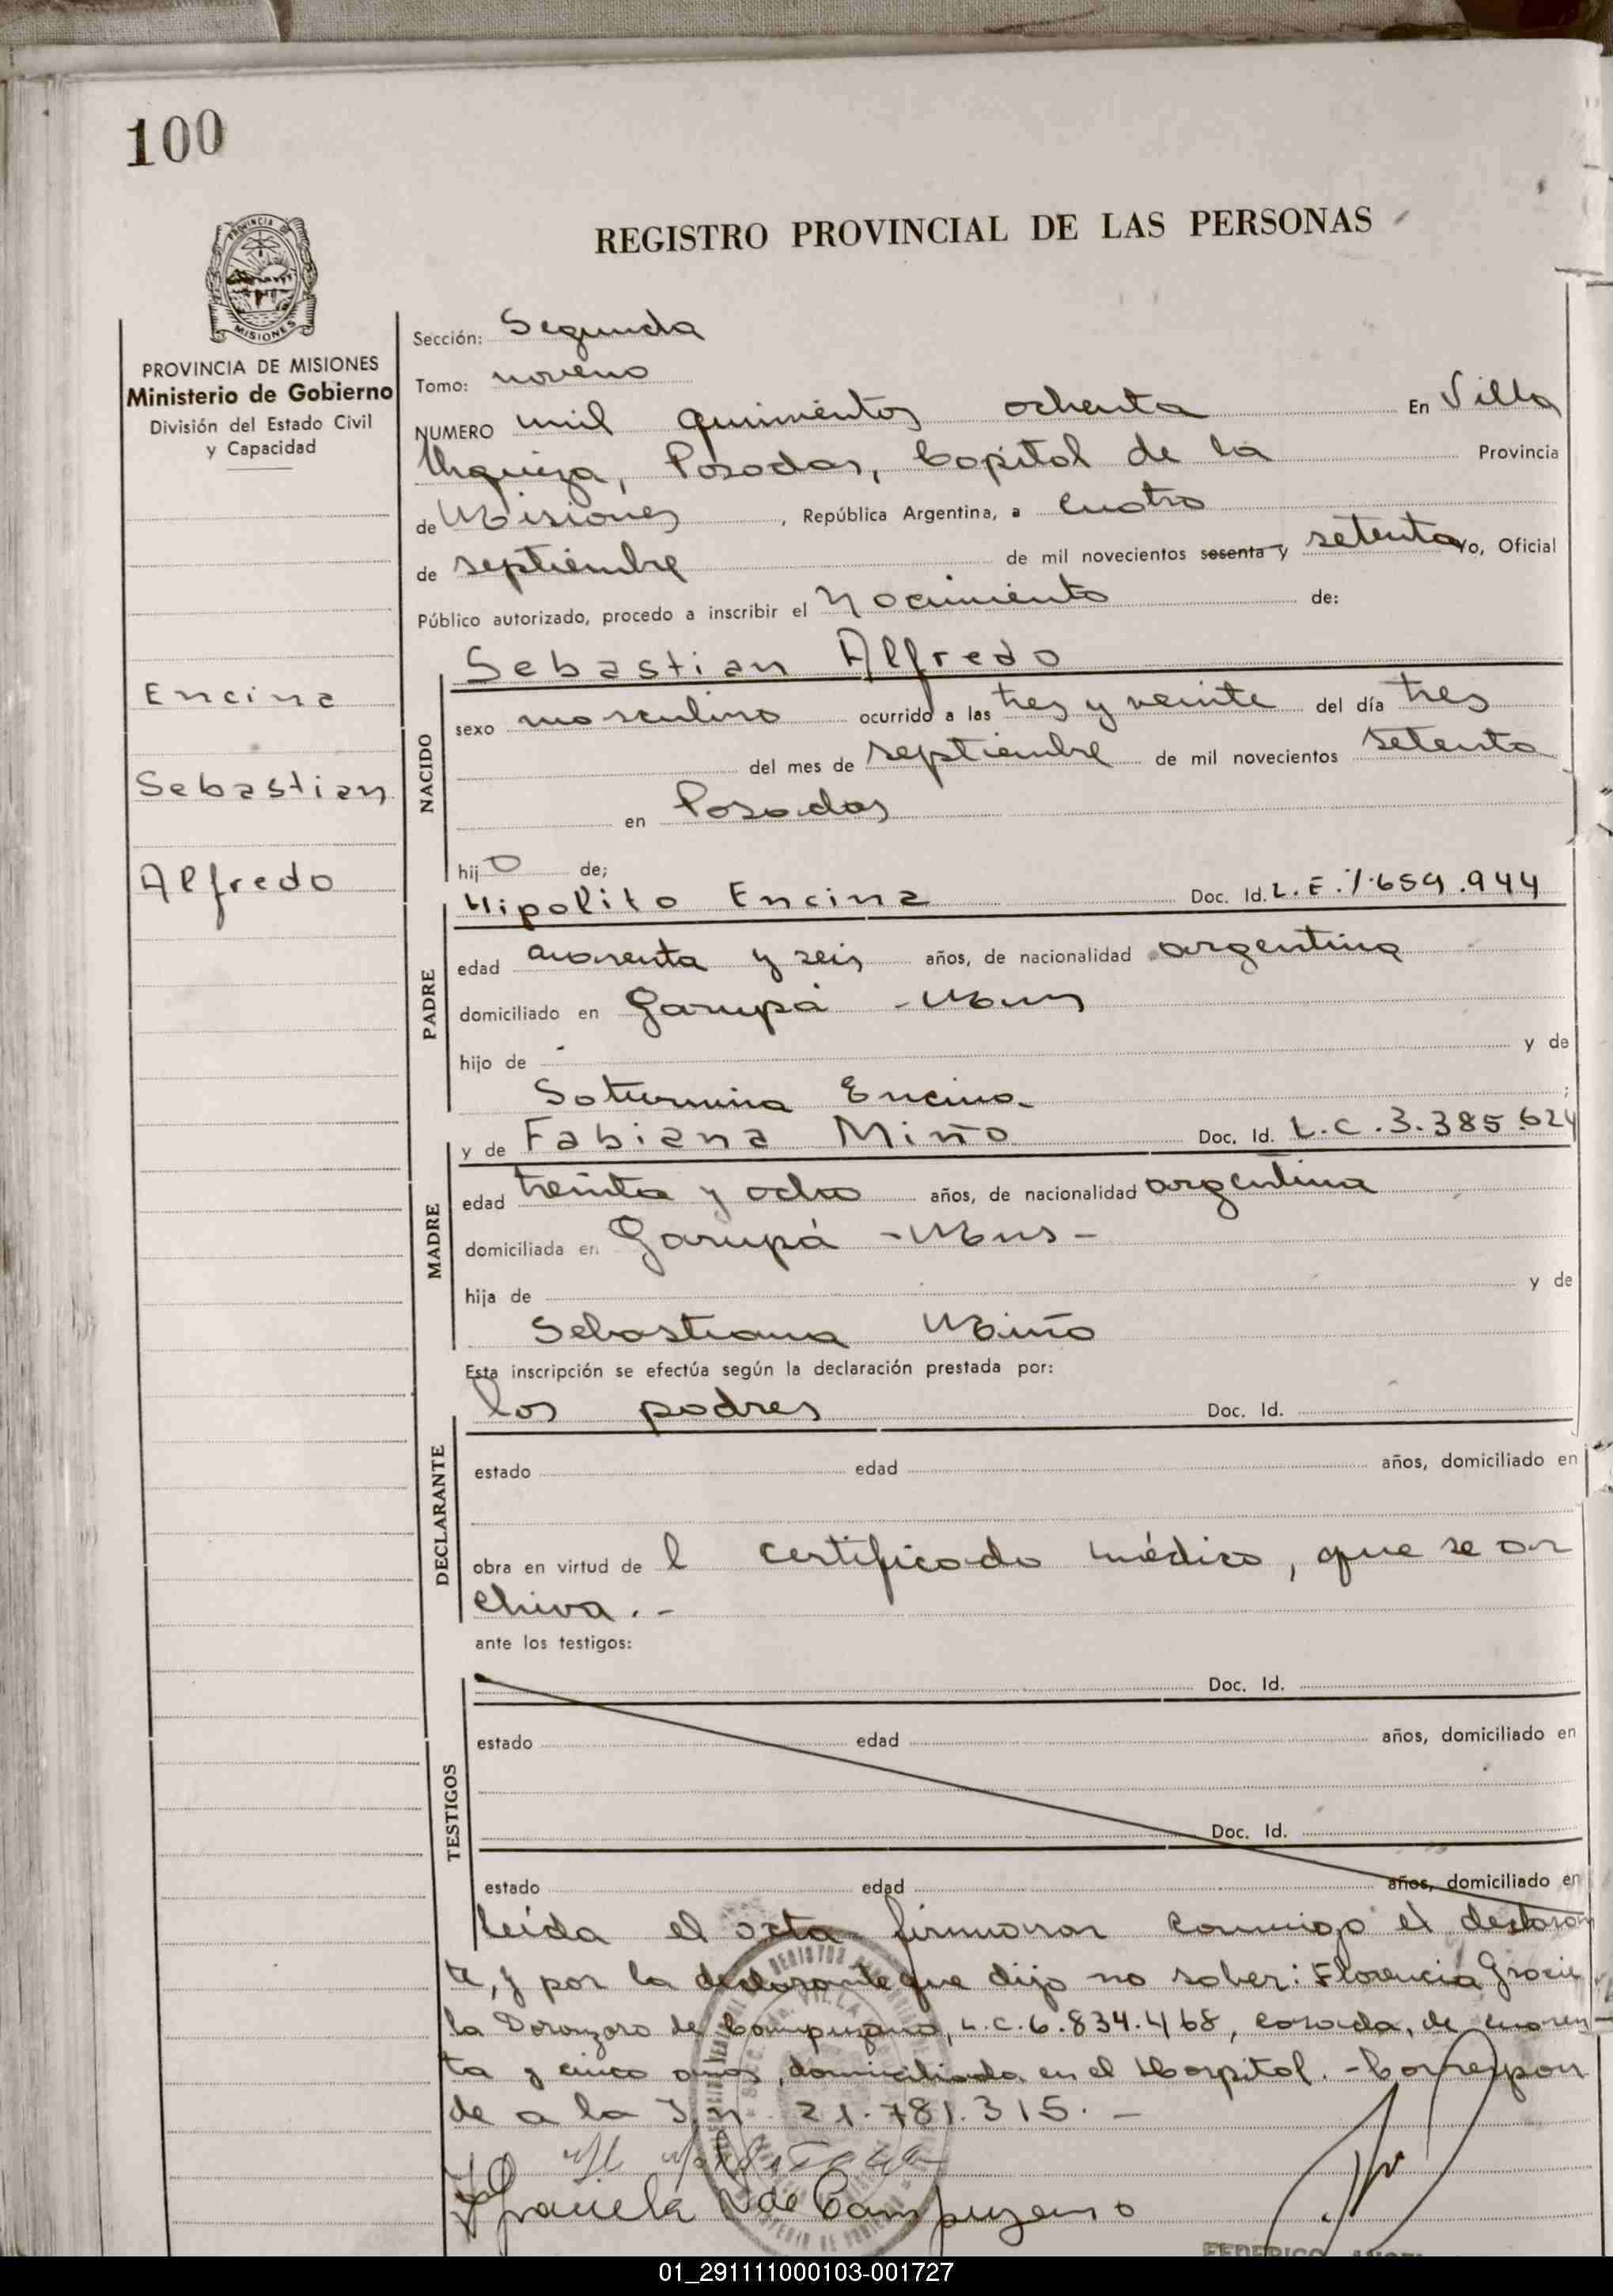 100
PROVINCIA DE
MISIONES
REGISTRO PROVINCIAL DE LAS PERSONAS
PROVINCIA DE MISIONES
Ministerio de Gobierno
División del Estado Civil
y Capacidad
Encina
Sebastian
Alfredo
Sección: Segunda
Tomo: noveno
NUMERO mil quinientos ochenta En Villa
Urquiza, Posadas, Capital de la Provincia
de Misiones, República Argentina, a cuatro
de septiembre de mil novecientos sesenta y setenta Yo, Oficial
Público autorizado, procedo a inscribir el Nacimiento de:
NACIDO
Sebastian Alfredo
sexo masculino ocurrido a las tres y veinte del día tres
del mes de septiembre de mil novecientos setenta
en Posadas
hijo de;
PADRE
Hipolito Encina Doc. Id. L.E. 7.659.944
edad cuarenta y seis años, de nacionalidad argentina
domiciliado en Garupá - Mnes
hijo de - y de
Saturnina Encina- ;
MADRE
y de Fabiana Miño Doc. Id. L.C. 3.385.624
edad treinta y ocho años, de nacionalidad argentina
domiciliada en Garupá - Mns -
hija de y de
Sebastiana Miño
Esta inscripción se efectúa según la declaración prestada por:
DECLARANTE
los padres Doc. Id.
estado edad años, domiciliado en
obra en virtud de l certificado médico, que se ar
chiva. -
ante los testigos:
TESTIGOS
Doc. Id.
estado edad años, domiciliado en
Doc. Id.
estado edad años, domiciliado en
Leída el acta firmaron conmigo el declaran
te, y por la declarante que dijo no saber: Florencia Gracie
la de Campuzano, L.C. 6.834.468, casada, de cuaren-
ta y cinco años, domiciliada en el Hospital. - Correspon
de a la I.n. 21.781.315. -
Graciela de Campuzano
FEDERICO
01_291111000103-001727